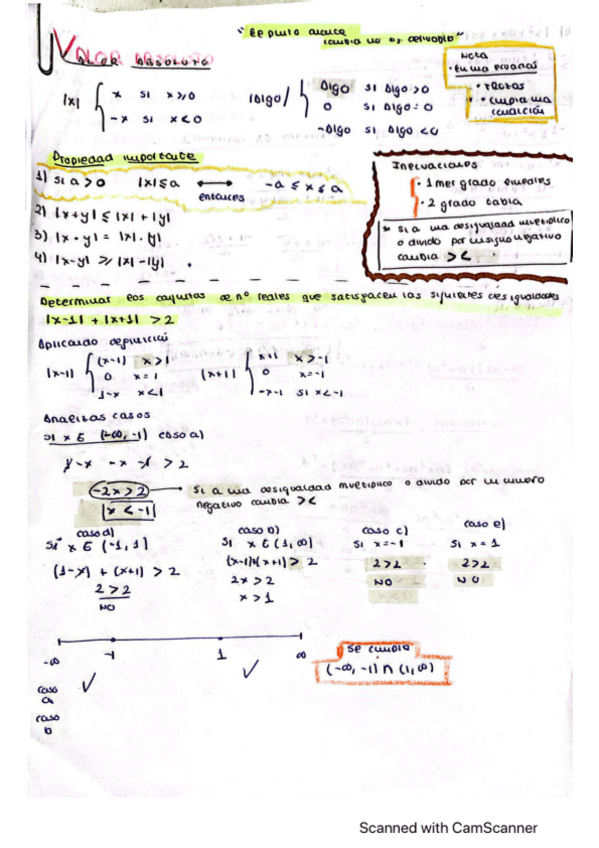 "El punto donde
cambia no es derivable"
VALOR ABSOLUTO
VALOR ABSOLUTO
|x| { x si x≥0
-x si x<0
|Algo| { Algo si Algo >0
0 si Algo=0
-Algo si Algo <0
NOTA
Propiedad importante
1) si a>0 |x|≤a ⟷ -a ≤ x ≤ a
entonces
2) |x+y| ≤ |x| + |y|
3) |x·y| = |x|·|y|
4) |x-y| ≥ |x| - |y|
Inecuaciones
· 1 mer grado
· 2 grado tabla
* Si a una desigualdad multiplico
o divido por un signo negativo
cambia ><
Determinar los conjuntos de nº reales que satisfacen las siguientes desigualdades
|x-1| + |x+1| > 2
Aplicando definición
|x-1| { (x-1) x>1
0 x=1
1-x x<1
|x+1| { x+1 x>-1
0 x=-1
-x-1 si x<-1
Analizas casos
si x ∈ (-∞, -1) caso a)
1-x -x -1 > 2
-2x>2 → Si a una desigualdad multiplico o divido por un número
negativo cambia ><
x < -1
caso d)
Si x ∈ (-1, 1)
(1-x) + (x+1) > 2
2 > 2
NO
caso b)
Si x ∈ (1, ∞)
(x-1)+(x+1) > 2
2x > 2
x > 1
caso c)
Si x=-1
2>2
NO
caso e)
Si x = 1
2>2
NO
-∞ -1 1 ∞
caso
a
caso
b
Se cumple
(-∞, -1) ∩ (1, ∞)
Scanned with CamScanner